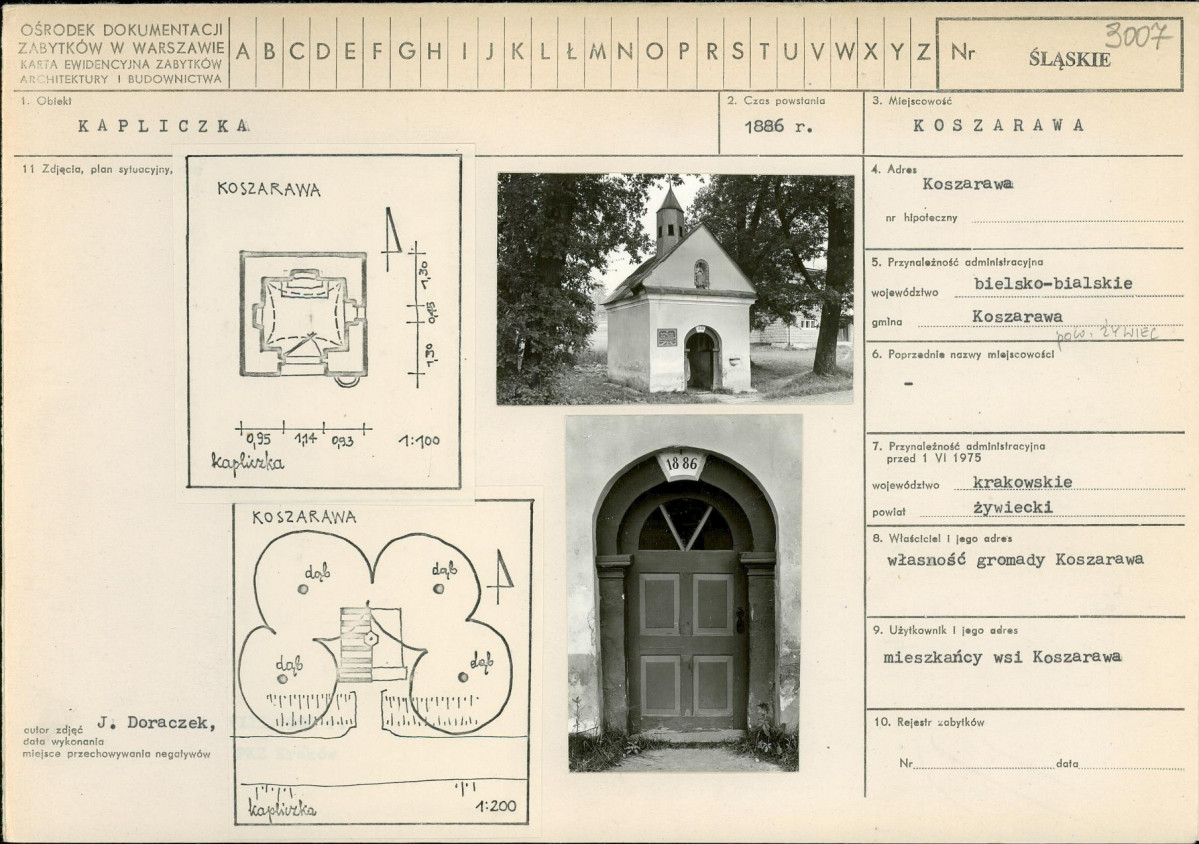 OŚRODEK DOKUMENTACJI
ZABYTKÓW W WARSZAWIE
KARTA EWIDENCYJNA ZABYTKÓW
ARCHITEKTURY I BUDOWNICTWA
A B C D E F G H I J K L Ł M N O P R S T U V W X Y Z
Nr
3007
ŚLĄSKIE
1. Obiekt
KAPLICZKA
2. Czas powstania
1886 r.
3. Miejscowość
KOSZARAWA
11 Zdjęcia, plan sytuacyjny,
KOSZARAWA
1,30
0,85
1,30
0,95 1,14 0,93
1:100
kapliczka
KOSZARAWA
dąb
dąb
dąb
dąb
kapliczka
1:200
1886
autor zdjęć J. Doraczek,
data wykonania
miejsce przechowywania negatywów
4. Adres
Koszarawa
nr hipoteczny
5. Przynależność administracyjna
województwo bielsko-bialskie
gmina Koszarawa
pow. ŻYWIEC
6. Poprzednie nazwy miejscowości
-
7. Przynależność administracyjna
przed 1 VI 1975
województwo krakowskie
powiat żywiecki
8. Właściciel i jego adres
własność gromady Koszarawa
9. Użytkownik i jego adres
mieszkańcy wsi Koszarawa
10. Rejestr zabytków
Nr data